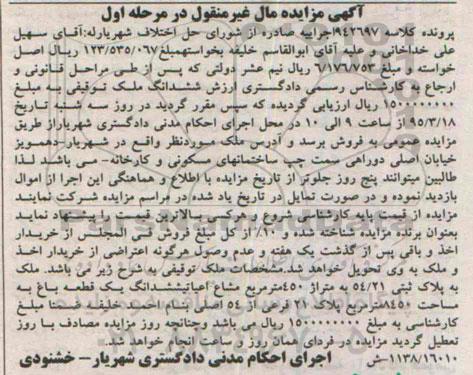 آگهی مزایده مال غیرمنقول در مرحله اول
پرونده کلاسه ۹۴۲۶۹۷اجراییه صادره از شورای حل اختلاف شهریارله:آقای سهیل
علی خداخانی و علیه آقای ابوالقاسم خلیفه بخواستهمبلغ۱۲۳/۵۳۵/۰۶۷ ریال اصل
خواسته و مبلغ ۶/۱۷۶/۷۵۳ ریال نیم عشر دولتی که پس از طی مراحل قانونی و
ارجاع به کارشناس رسمی دادگستری ارزش ششدانگ ملک توقیفی به مبلغ
۱۵۰۰۰۰۰۰۰۰ ریال ارزیابی گردیده که سپس مقرر گردید در روز سه شنبه تاریخ
۹۵/۳/۱۸از ساعت ۹ الی ۱۰ در محل اجرای احکام مدنی دادگستری شهریاراز طریق
مزایده عمومی به فروش برسد و آدرس ملک موردنظر واقع در شهریار-دهمویز
خیابان اصلی دوراهی سمت چپ ساختمانهای مسکونی و کارخانه- می باشد لذا
طالبین میتوانند پنج روز جلوتر از تاریخ مزایده با اطلاع و هماهنگی این اجرا از اموال
بازدید نموده و در صورت تمایل در تاریخ یاد شده در مراسم مزایده شرکت نمایند
مزایده از قیمت پایه کارشناسی شروع و هرکسی بالاترین قیمت را پیشنهاد نماید
بعنوان برنده مزایده شناخته شده و ۱۰٪ از کل مبلغ فروش فی المجلس از خریدار
اخذ و باقی پس از گذشت یک هفته و عدم وصول هرگونه اعتراضی از خریدار اخذ
و ملک به وی تحویل خواهد شد.مشخصات ملک توقیفی به شرح زیر می باشد. ملک
به پلاک ثبتی ۵۴/۲۱ به متراژ ۴۵۰مترمربع مشاع اعیاتیششدانگ یک قطعه باغ به
مساحت ۸۴۵۰مترمربع پلاک ۲۱ فرعی از ۵۴ اصلی بنام احمد خلیفه ضمنا مبلغ
کارشناسی به مبلغ ۱۵۰۰۰۰۰۰۰۰ ریال می باشد وچنانچه روز مزایده مصادف با روز
تعطیل گردید مزایده در فردای همان روز و ساعت انجام خواهد شد.
۱۱۳۸/۱۶۰۱۰-ش اجرای احکام مدنی دادگستری شهریار- خشنودی